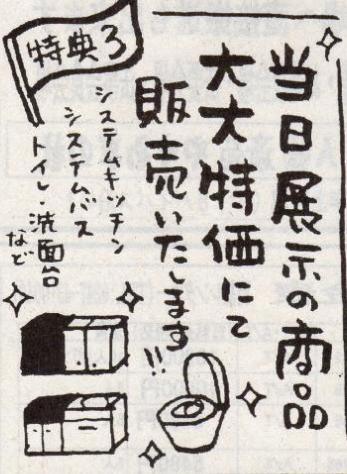 特典3
当日展示の商品
大大特価にて
販売いたします!!
システムキッチン
システムバス
トイレ・洗面台
など